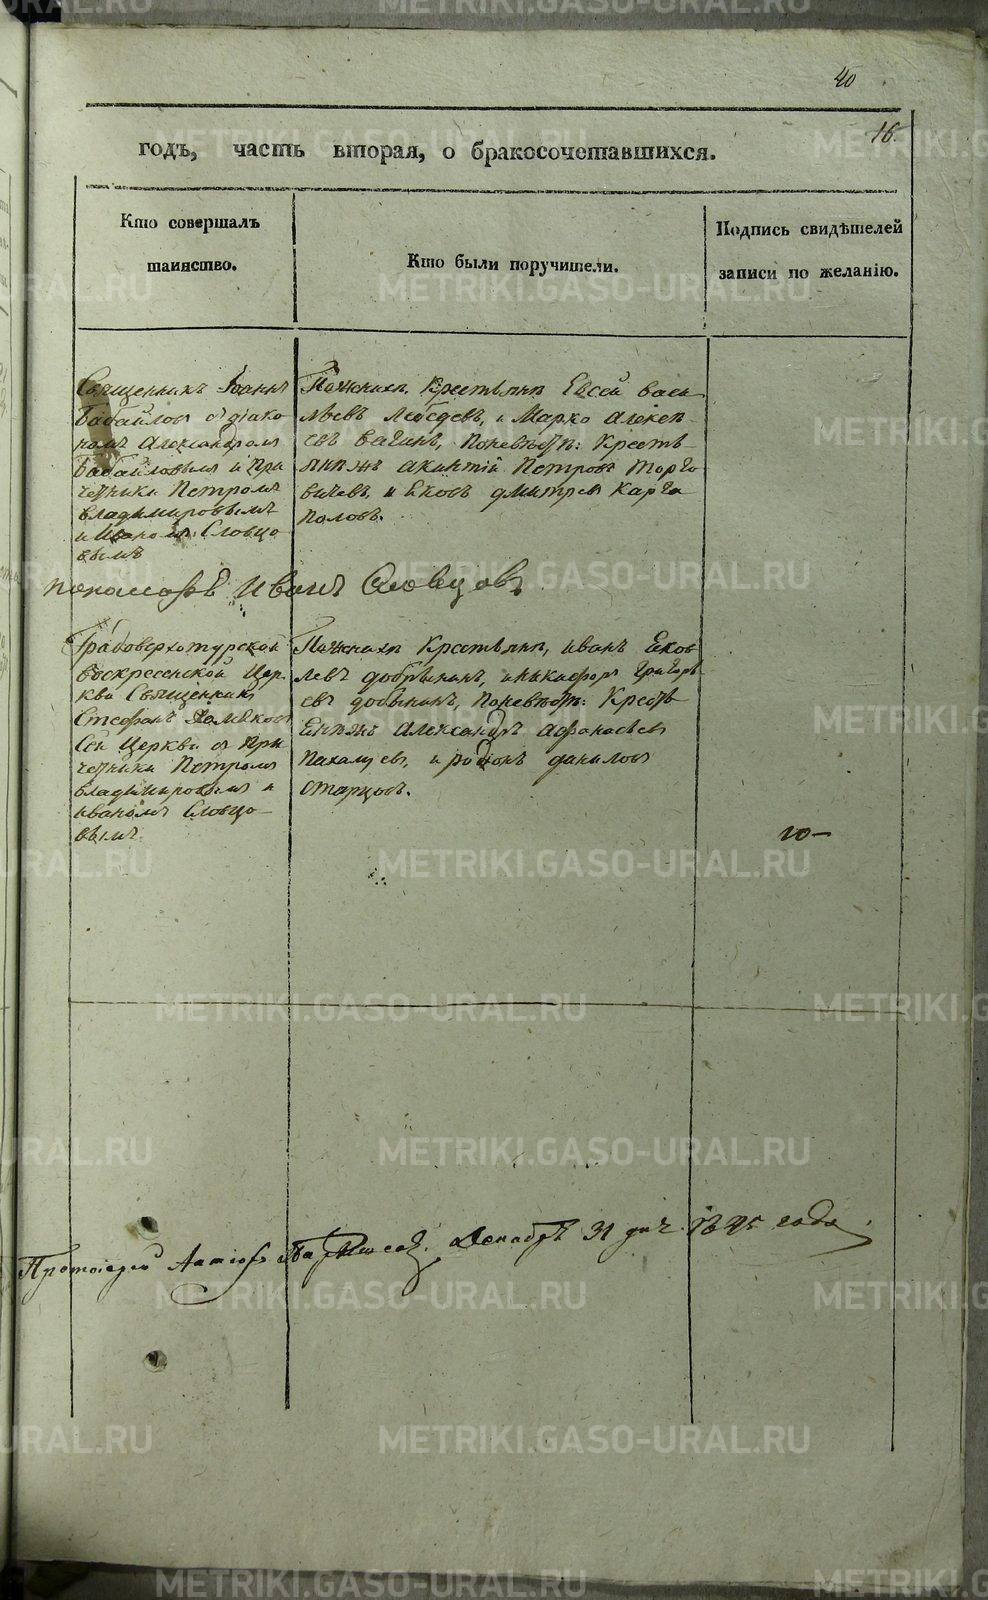 40
16.
годъ, часть вторая, о бракосочетавшихся.
Кто совершалъ
таинство.
Кто были поручители.
Подпись свидѣтелей
записи по желанію.
Священникъ Іоаннъ
Бабайловъ съ діако
номъ Александромъ
Бабайловымъ и при
четники Петромъ
Владимировымъ
и Иваномъ Словцо
вымъ
По женихѣ Крестьяне Евсей Васи
льевъ Лебедевъ, и Марко Алексе
евъ Вагинъ, по невѣстѣ: Кресть
янинъ Акинтій Петровъ Торго
вичевъ, и Яковъ Дмитревъ Карга
половъ.
пономарь Иванъ Словцовъ
Градоверхотурской
Воскресенской Цер
кви Священникъ
Стефанъ
Сей Церкви съ при
четники Петромъ
Владимировымъ и
Иваномъ Словцо
вымъ.
По женихѣ Крестьяне, Иванъ Яков
левъ Добрынинъ, и Никифоръ Григорь
евъ Добынинъ, по невѣстѣ: Кресть
Александръ Афонасьевъ
и Родіонъ Даниловъ
Старцовъ.
Протоіерей Декабря 31 дня 1845 года
METRIKI.GASO-URAL.RU